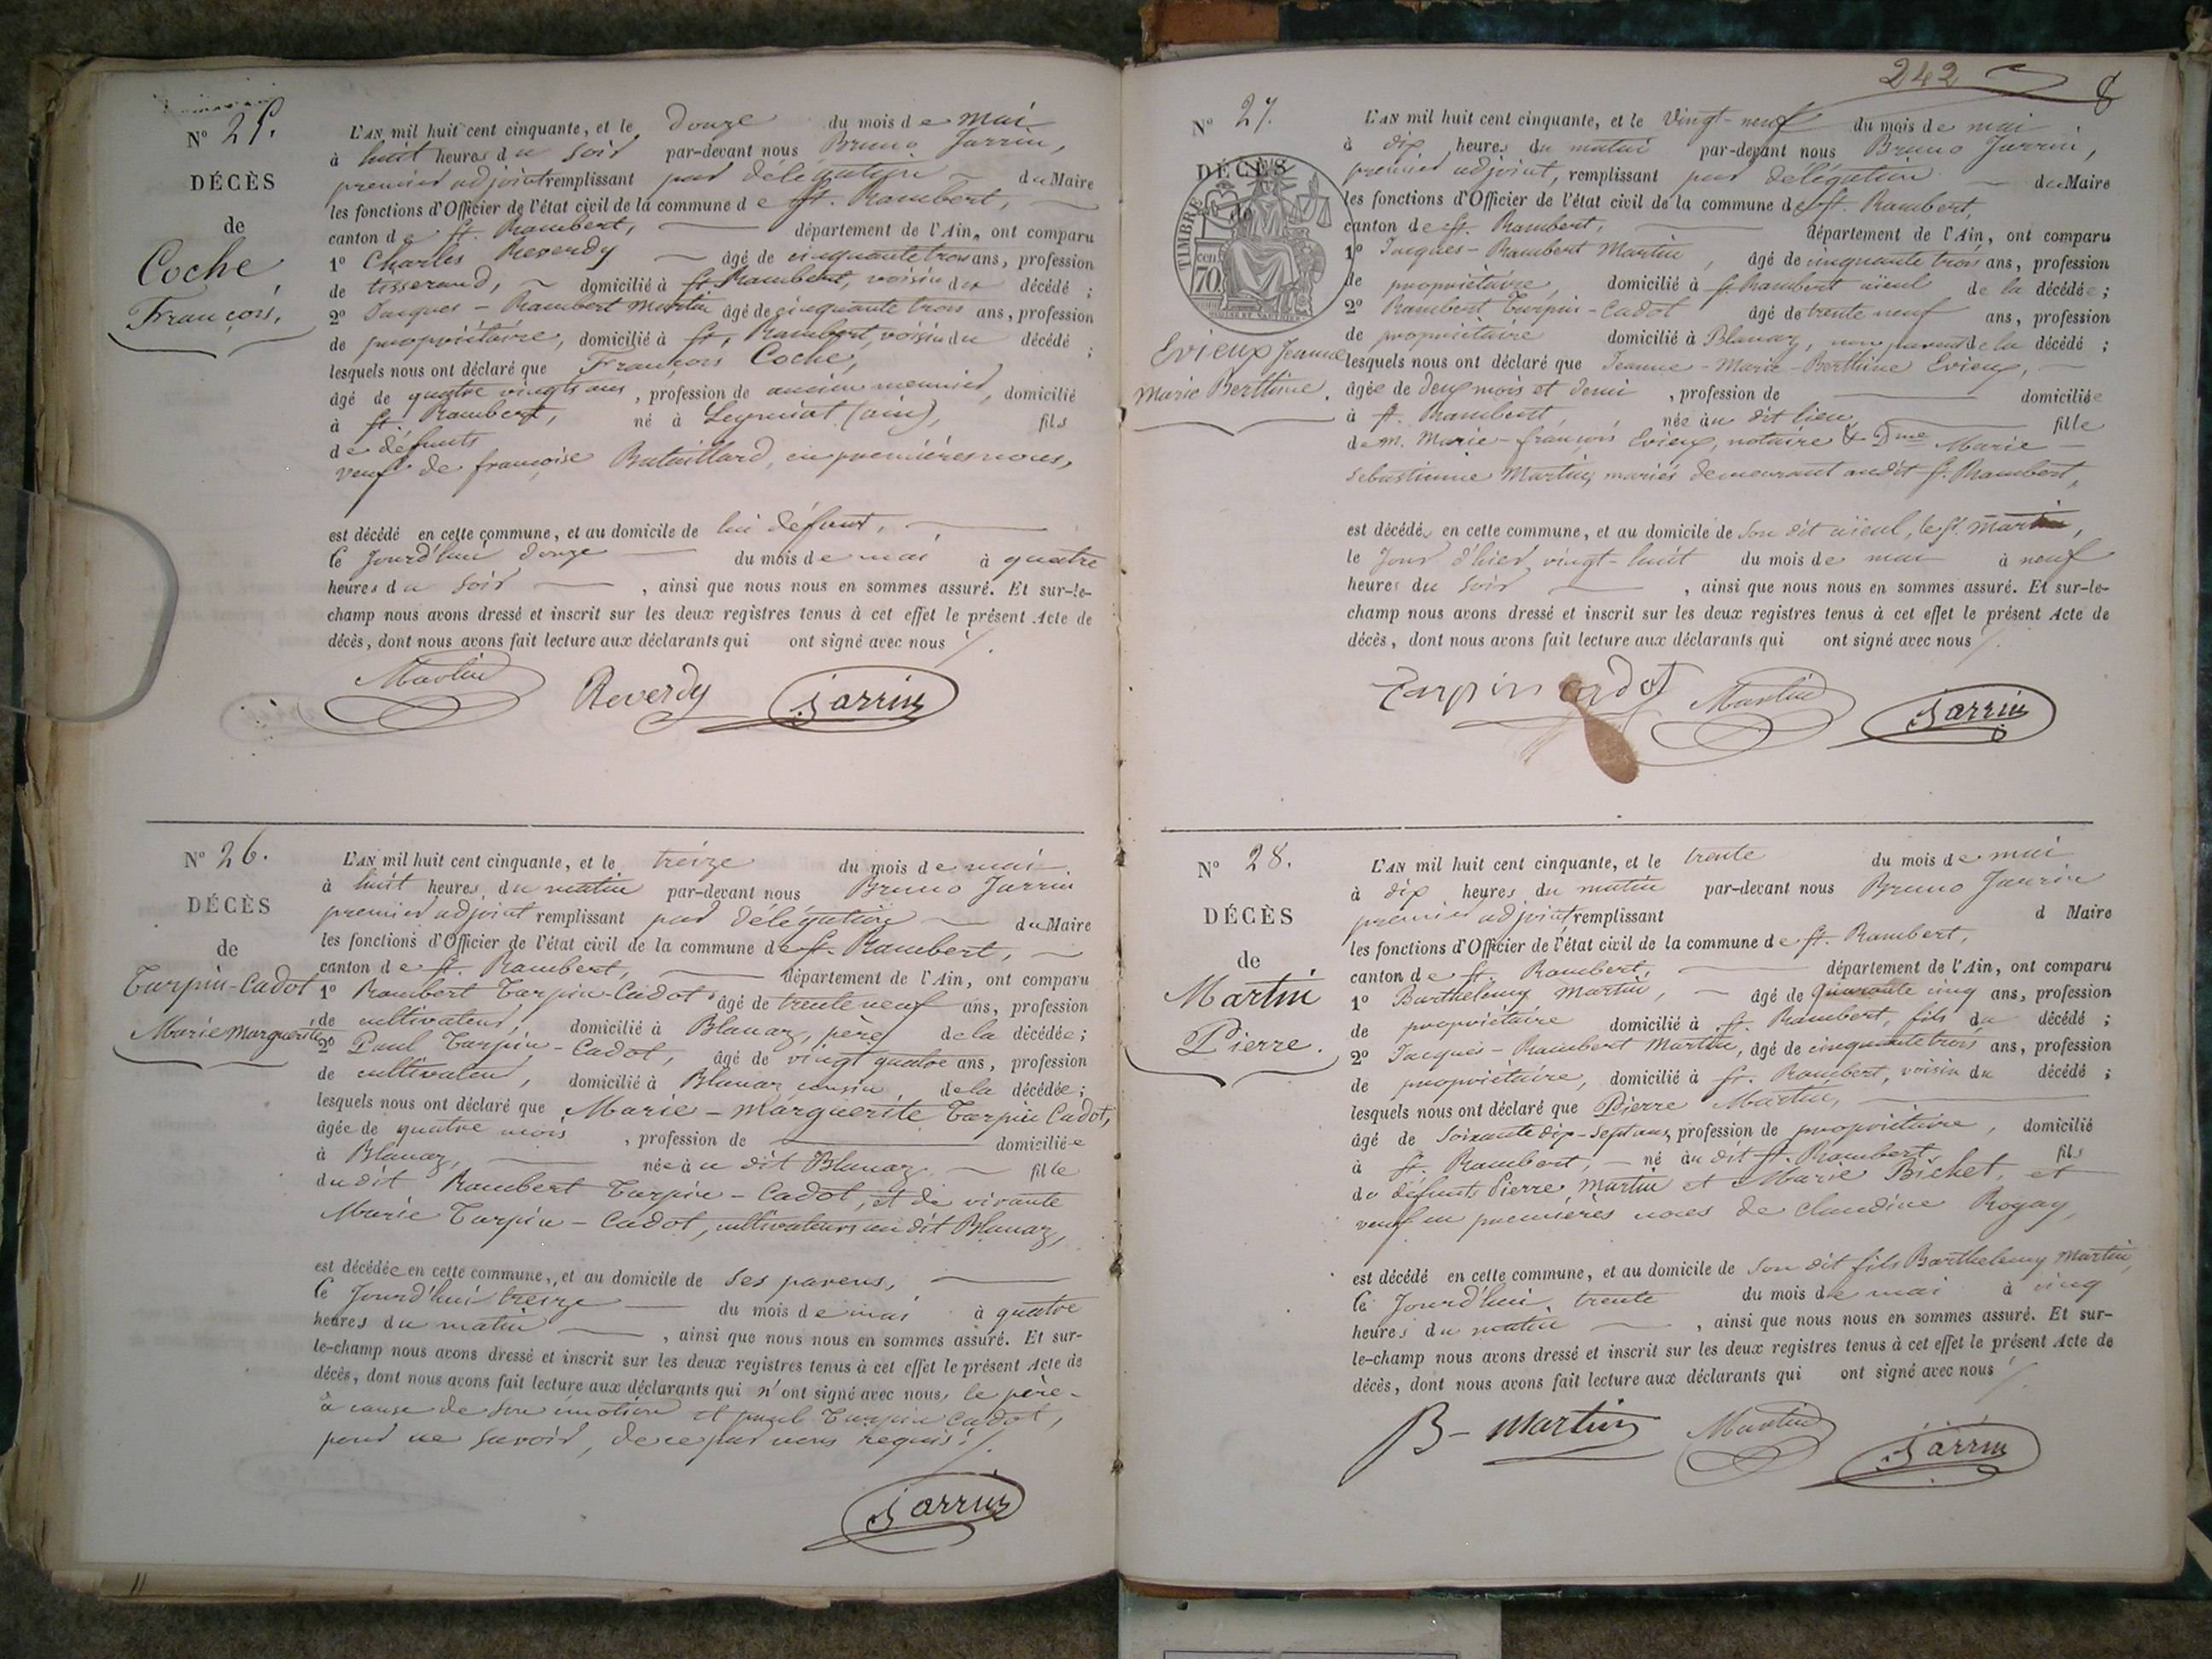 N° 25.
DÉCÈS
de
Coche
François,
L'AN mil huit cent cinquante, et le douze du mois de mai
à huit heures du soir par-devant nous Bruno Jarrin,
premier adjoint remplissant par délégation du Maire
les fonctions d'Officier de l'état civil de la commune de St. Rambert,
canton de St. Rambert, département de l'Ain, ont comparu
1° Charles Reverdy âgé de cinquante trois ans, profession
de tisserand, domicilié à St. Rambert, voisin du décédé ;
2° Jacques-Rambert Martin âgé de cinquante trois ans, profession
de propriétaire, domicilié à St. Rambert, voisin du décédé ;
lesquels nous ont déclaré que François Coche,
âgé de quatre vingts ans, profession de ancien meunier, domicilié
à St. Rambert, né à Leyment (ain), fils
de défunts
veuf de françoise Bataillard, en premières noces,
est décédé en cette commune, et au domicile de lui défunt,
Ce Jourd'hui douze du mois de mai à quatre
heures du soir, ainsi que nous nous en sommes assuré. Et sur-le-
champ nous avons dressé et inscrit sur les deux registres tenus à cet effet le présent Acte de
décès, dont nous avons fait lecture aux déclarants qui ont signé avec nous ./.
Martin Reverdy Jarrin
N° 26.
DÉCÈS
de
Turpin-Cadot
Marie Marguerite
L'AN mil huit cent cinquante, et le treize du mois de mai
à huit heures du matin par-devant nous Bruno Jarrin
premier adjoint remplissant par délégation du Maire
les fonctions d'Officier de l'état civil de la commune de St. Rambert,
canton de St. Rambert, département de l'Ain, ont comparu
1° Rambert Turpin-Cadot, âgé de trente neuf ans, profession
de cultivateur, domicilié à Blanaz, père de la décédée ;
2° Paul Turpin-Cadot, âgé de vingt quatre ans, profession
de cultivateur, domicilié à Blanaz cousin de la décédée ;
lesquels nous ont déclaré que Marie-Marguerite Turpin Cadot,
âgée de quatre mois, profession de domiciliée
à Blanaz, née au dit Blanaz fille
du dit Rambert Turpin-Cadot, et de vivante
Marie Turpin-Cadot, cultivateurs au dit Blanaz,
est décédée en cette commune, et au domicile de ses parens,
Ce Jourd'hui treize du mois de mai à quatre
heures du matin, ainsi que nous nous en sommes assuré. Et sur-
le-champ nous avons dressé et inscrit sur les deux registres tenus à cet effet le présent Acte de
décès, dont nous avons fait lecture aux déclarants qui n'ont signé avec nous, le père
à cause de son émotion et paul Turpin Cadot,
pour ne savoir, de ce par nous requis ./.
Jarrin
242 8
N° 27.
DÉCÈS
de
TIMBRE
70 cen
Evieux Jeanne
Marie Berthine.
L'AN mil huit cent cinquante, et le Vingt-neuf du mois de mai
à dix heures du matin par-devant nous Bruno Jarrin,
premier adjoint, remplissant par délégation du Maire
les fonctions d'Officier de l'état civil de la commune de St. Rambert,
canton de St. Rambert, département de l'Ain, ont comparu
1° Jacques-Rambert Martin, âgé de cinquante trois ans, profession
de propriétaire, domicilié à St. Rambert aïeul de la décédée ;
2° Rambert Turpin-Cadot âgé de trente neuf ans, profession
de propriétaire domicilié à Blanaz, non parent de la décédé ;
lesquels nous ont déclaré que Jeanne-Marie-Berthine Evieux,
âgée de deux mois et demi, profession de domiciliée
à St. Rambert née au dit lieu, fille
de m. Marie-françois Evieux, notaire & Dme Marie
Sebastienne Martin, mariés demeurant audit St. Rambert,
est décédée en cette commune, et au domicile de son dit aïeul, le Sr. Martin,
le Jour d'hier vingt-huit du mois de mai à neuf
heures du soir, ainsi que nous nous en sommes assuré. Et sur-le-
champ nous avons dressé et inscrit sur les deux registres tenus à cet effet le présent Acte de
décès, dont nous avons fait lecture aux déclarants qui ont signé avec nous ./.
Turpin cadot Martin Jarrin
N° 28.
DÉCÈS
de
Martin
Pierre.
L'AN mil huit cent cinquante, et le trente du mois de mai
à dix heures du matin par-devant nous Bruno Jarrin
premier adjoint remplissant d Maire
les fonctions d'Officier de l'état civil de la commune de St. Rambert,
canton de St. Rambert, département de l'Ain, ont comparu
1° Barthelemy Martin, âgé de Quarante cinq ans, profession
de propriétaire domicilié à St. Rambert, fils du décédé ;
2° Jacques-Rambert Martin, âgé de cinquante trois ans, profession
de propriétaire, domicilié à St. Rambert, voisin du décédé ;
lesquels nous ont déclaré que Pierre Martin,
âgé de Soixante dix-sept ans, profession de propriétaire, domicilié
à St. Rambert, né au dit St. Rambert, fils
de défunts Pierre Martin et Marie Bichet, et
veuf en premières noces de claudine Rogay,
est décédé en cette commune, et au domicile de son dit fils Barthelemy Martin,
Ce Jourd'hui trente du mois de mai à cinq
heures du matin, ainsi que nous nous en sommes assuré. Et sur-
le-champ nous avons dressé et inscrit sur les deux registres tenus à cet effet le présent Acte de
décès, dont nous avons fait lecture aux déclarants qui ont signé avec nous ./.
B-Martin Martin Jarrin